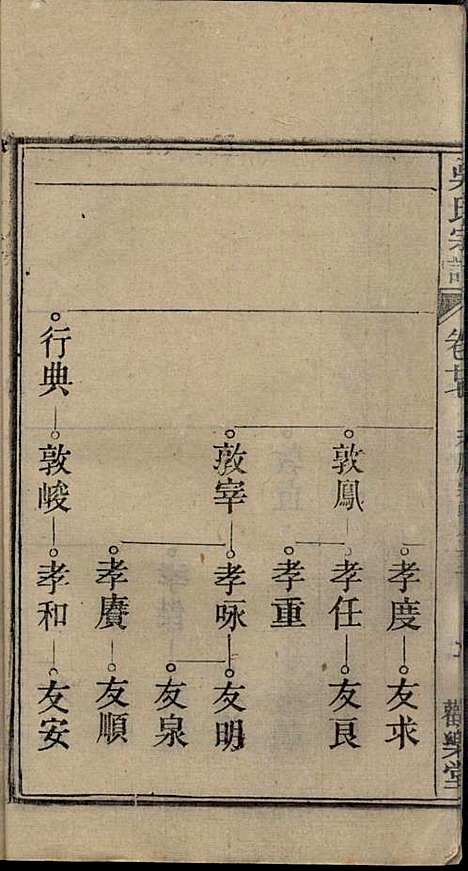 吳氏宗譜
卷廿
觀樂堂
孝度
友求
敦鳳
孝任
友良
孝重
敦宰
孝咏
友明
友泉
孝賡
友順
行典
敦峻
孝和
友安